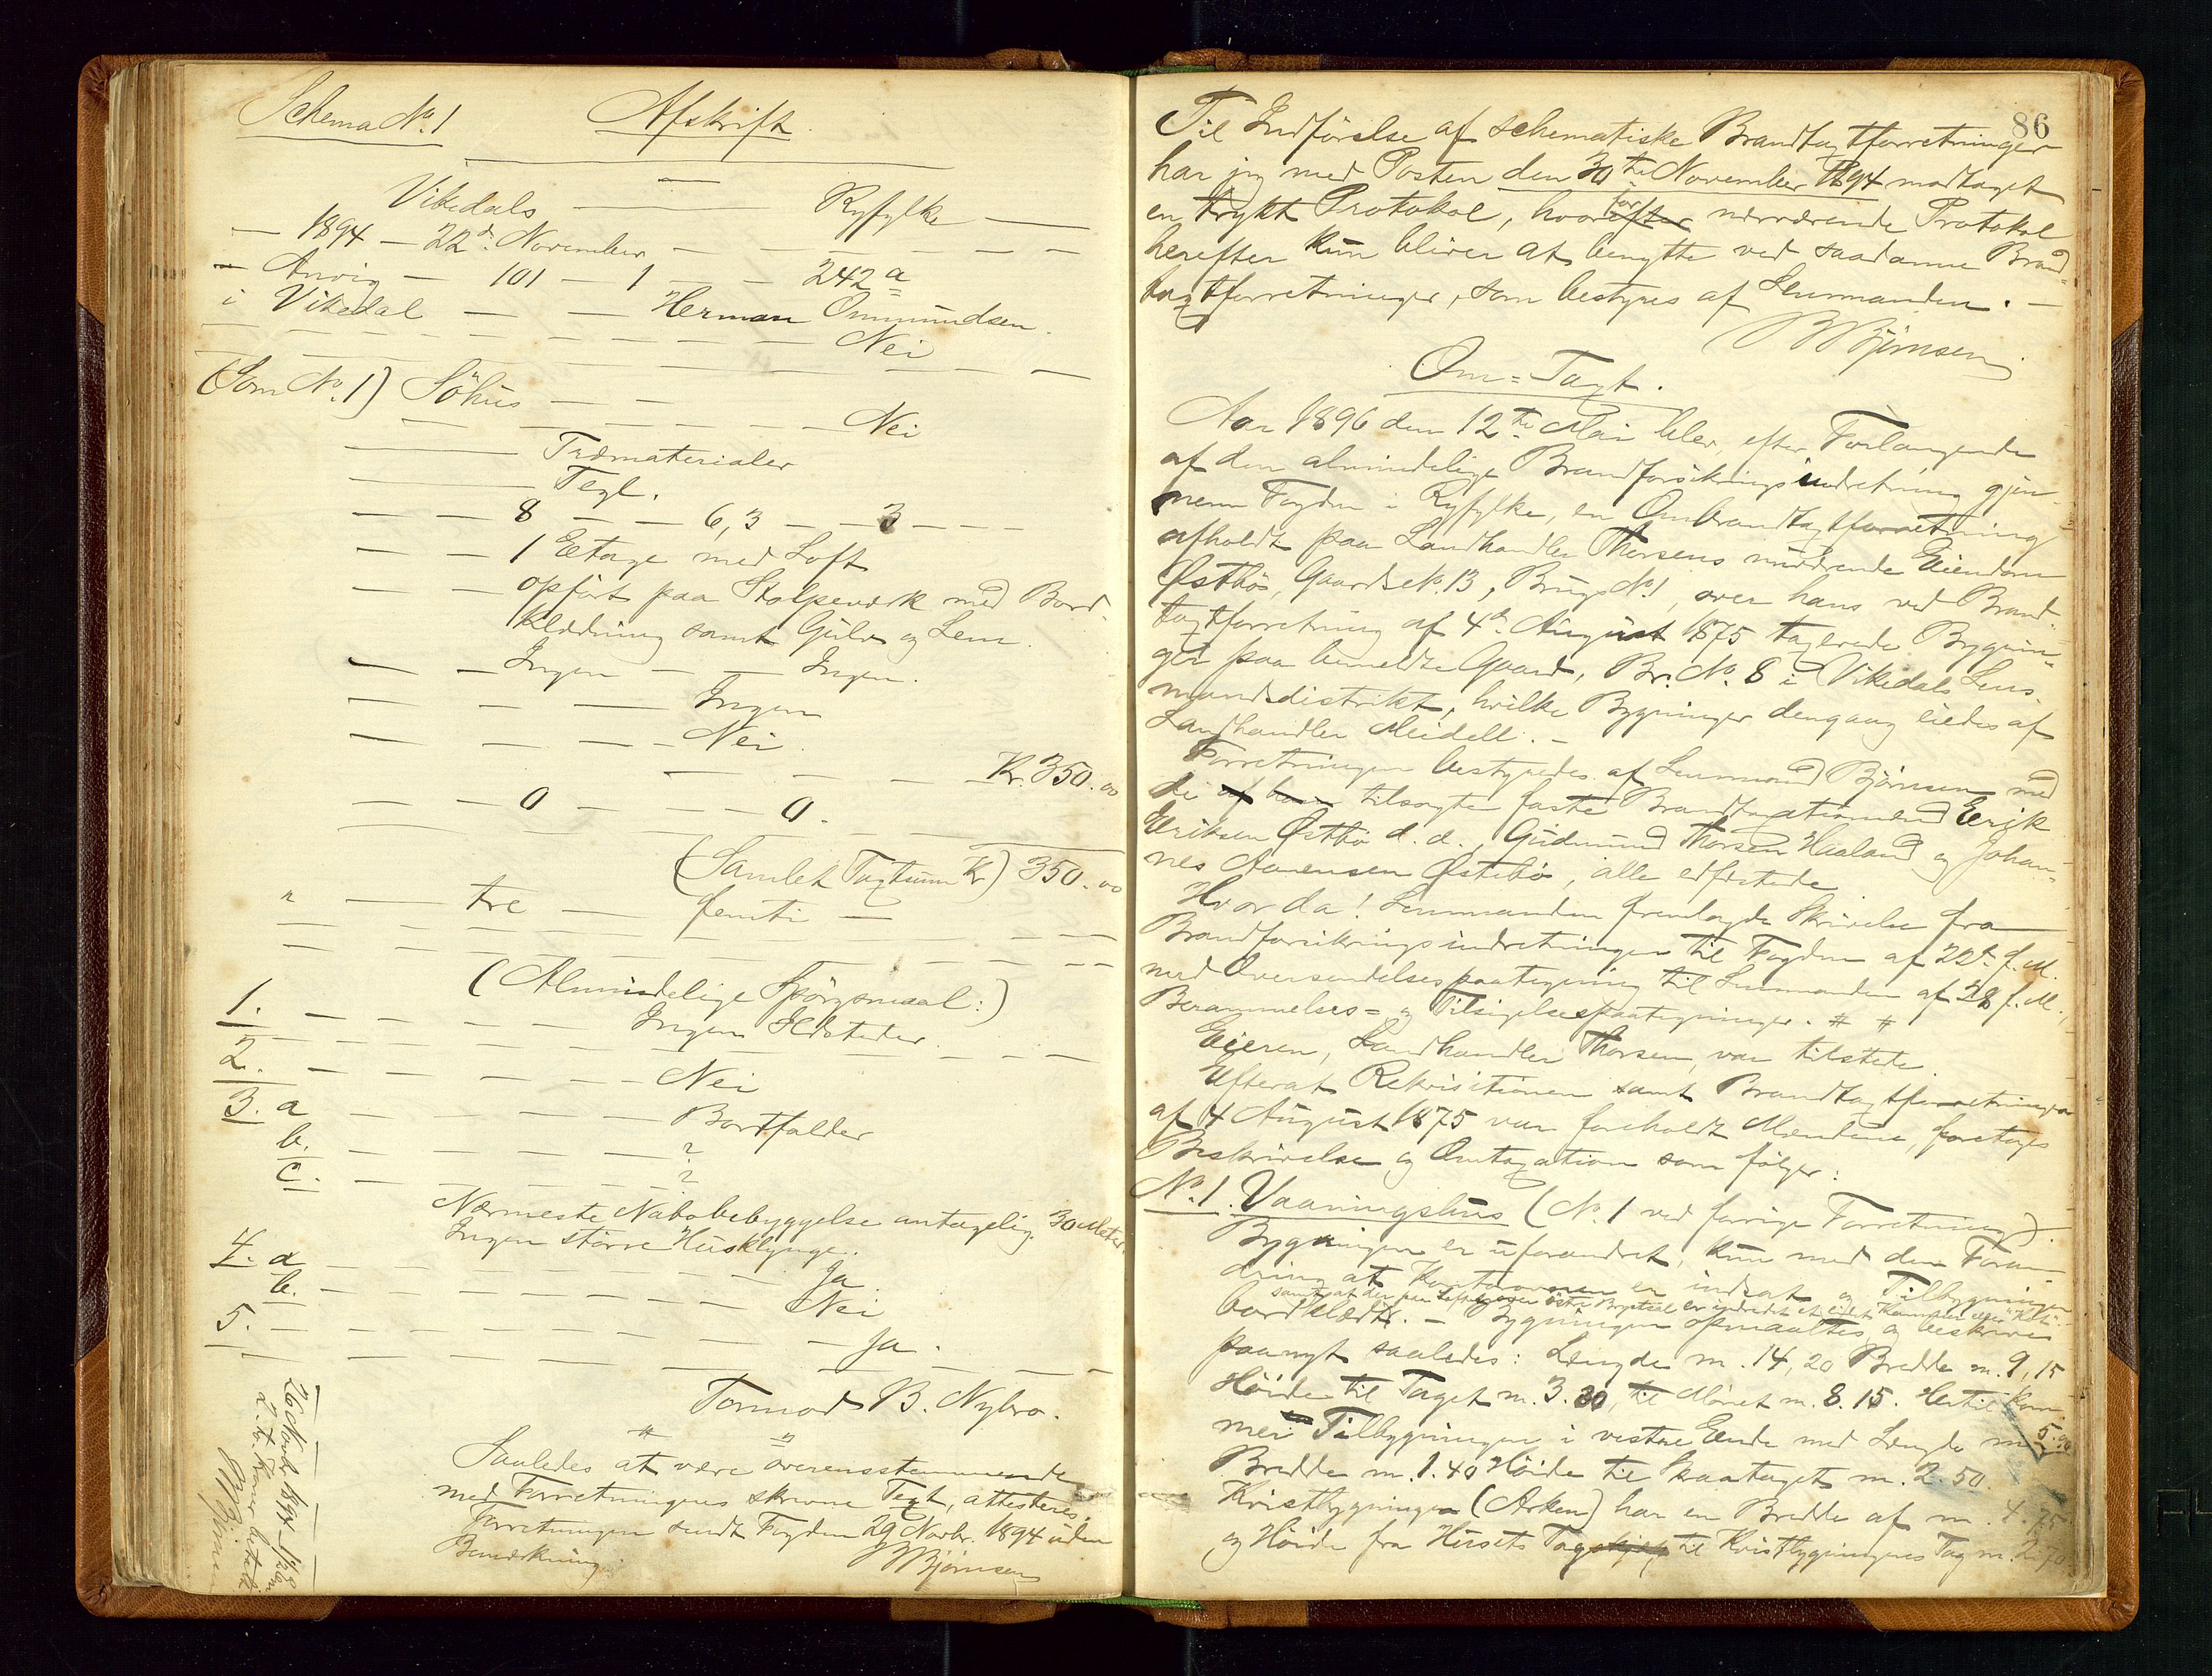 Schema No. 1 Afskrift.
Vikedals — Ryfylke —
— 1894 — 22de November —
— Anvig — 101 — 1 — 242 a
i Vikedal — — Herman Ommundsen.
— Nei
(Som No. 1) Söhus — —
— Nei
Træmaterialer
Tegl.
— — 8 — — 6,3 — — 3 — — —
— — 1 Etage med Loft
— — opfört paa Stolpeverk med Bord-
klædning samt Gulv og Lem.
— — Ingen — — Ingen.
— — — Ingen
— — — Nei.
— — — — Kr. 350.00
— — 0 — — — 0.
(Samlet Taxtsum Kr) 350.00
" — tre — femti —
(Almindelige Spörgsmaal:)
1. — — — Ingen Ildsteder.
2. — — — Nei
3. a — — — Bortfalder
b. — — — ?
c. — — — ?
Nærmeste Nabobebyggelse antagelig 30 Meter.
Ingen större Husklynge.
4. a — — — Ja
b. — — — Nei
5. — — — Ja.
Tormod B. Nybro.
Saaledes at være overensstemmende
med Forretningens skrevne Text, attesteres.
Forretningen sendt Fogden 29 Novbr. 1894 uden
Bemærkning.
Bjørnsen
26 Novbr. 1894
Bjørnsen
86
Til Indförelse af schematiske Brandtaxtforretninger
har jeg med Posten den 30te November 1894 modtaget
en trykt Protokol, hvorfor efter nærværende Protokol
herefter kun bliver at benytte ved saadanne Brand-
taxtforretninger, som bestyres af Lensmanden. —
Bjørnsen
Om=Taxt.
Aar 1896 den 12te Mai blev, efter Forlangende
af den almindelige Brandforsikringsindretning gjen-
nem Fogden i Ryfylke, en Ombrandtaxtforretning
afholdt paa Landhandler Thorsens nuværende Eiendom
Østbö, Gaards No. 13, Brugs No. 1, over hans ved Brand-
taxtforretning af 4de August 1875 taxerede Bygnin-
ger paa bemeldte Gaard, Br. No. 8 i Vikedals Lens-
mandsdistrikt, hvilke Bygninger dengang eiedes af
Landhandler Meidell. —
Forretningen bestyredes af Lensmand Björnsen med
de af ham tilsagte faste Brandtaxtionsmænd Erik
Eriksen Østbö d. d., Gudmund Thorsen Haaland og Johan-
nes Aanensen Østebö, alle edfæstede.
Hvor da! Lensmanden fremlagde Skrivelse fra
Brandforsikringsindretningen til Fogden af 22de f. M.
med Oversendelsespaategning til Lensmanden af 28 f. M.,
Berammelses= og Tilsigelsespaategninger. # #
Eieren, Landhandler Thorsen, var tilstede.
Efterat Rekvisitionen samt Brandtaxtforretningen
af 4 August 1875 var foreholdt Mændene, foretoges
Beskrivelse og Omtaxation som fölger:
No. 1. Vaaningshus (No. 1 ved forrige Forretning).
Bygningen er uforandret, kun med den Foran-
dring at Kontorovnen er indsat og Tilbygningen
samt at der paa Loftet over östre
bordklædt. — Bygningen opmaaltes og beskrives
paanyt saaledes: Længde m. 14,20 Bredde m. 9,15
Höide til Taget m. 3.30, til Mönet m. 8.15. Hertil kom-
mer Tilbygningen i vestre Ende med Længde m. 5.90
Bredde m. 1.40 Höide til Skraataget m. 2.50.
Kvistbygningen (Arken) har en Bredde af m. 4.75
og Höide fra Husets Tag til Kvistbygningens Tag m.